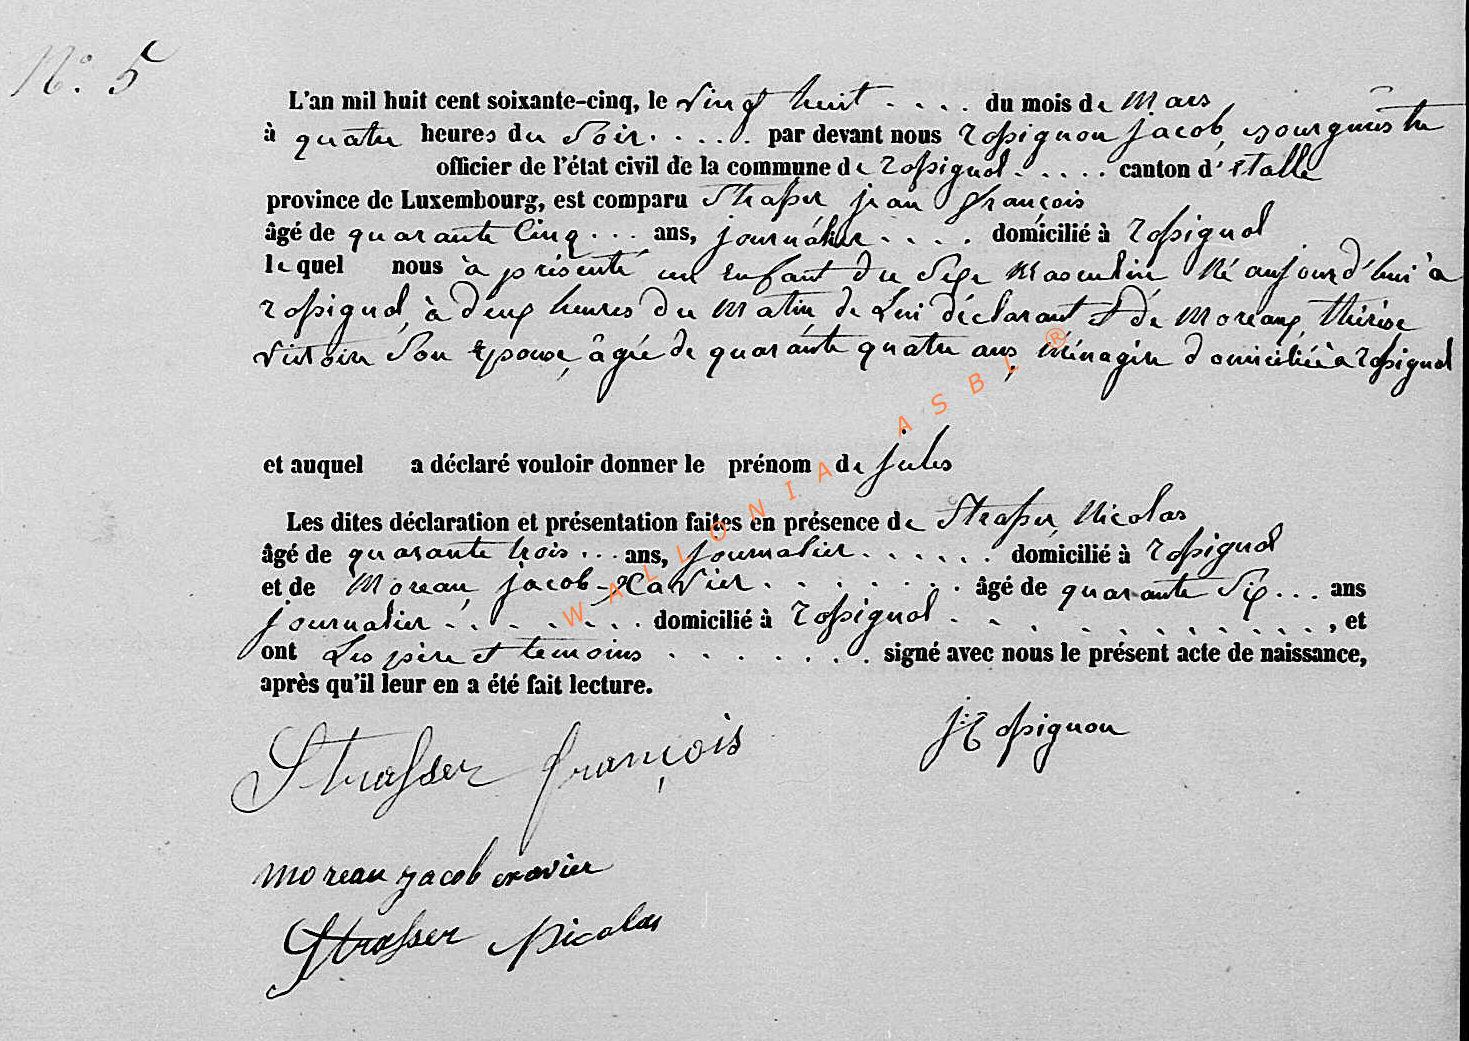 N.° 5
L'an mil huit cent soixante-cinq, le vingt huit .... du mois de Mars
à quatre heures du Soir..... par devant nous rossignon jacob, bourguestre
officier de l'état civil de la commune de rossignol..... canton d'étalle
province de Luxembourg, est comparu Strasser jean françois
âgé de quarante Cinq... ans, journalier.... domicilié à rossignol
lequel nous à présenté un Enfant du Sexe Masculin Né aujourd'hui à
rossignol, à deux heures du Matin de Lui déclarant et de Moreaux, thérèse
victoire Son Epouse, âgée de quarante quatre ans, Ménagère domiciliée à rossignol
et auquel a déclaré vouloir donner le prénom de jules
Les dites déclaration et présentation faites en présence de Strasser, Nicolas
âgé de quarante trois... ans, journalier..... domicilié à rossignol
et de Moreau, jacob-Xavier....... âgé de quarante Six... ans
journalier....... domicilié à rossignol..........., et
ont Les père et temoins....... signé avec nous le présent acte de naissance,
après qu'il leur en a été fait lecture.
Strasser françois
J: Rossignon
moreau jacob xavier
Strasser Nicolas
WALLONIA ASBL ®